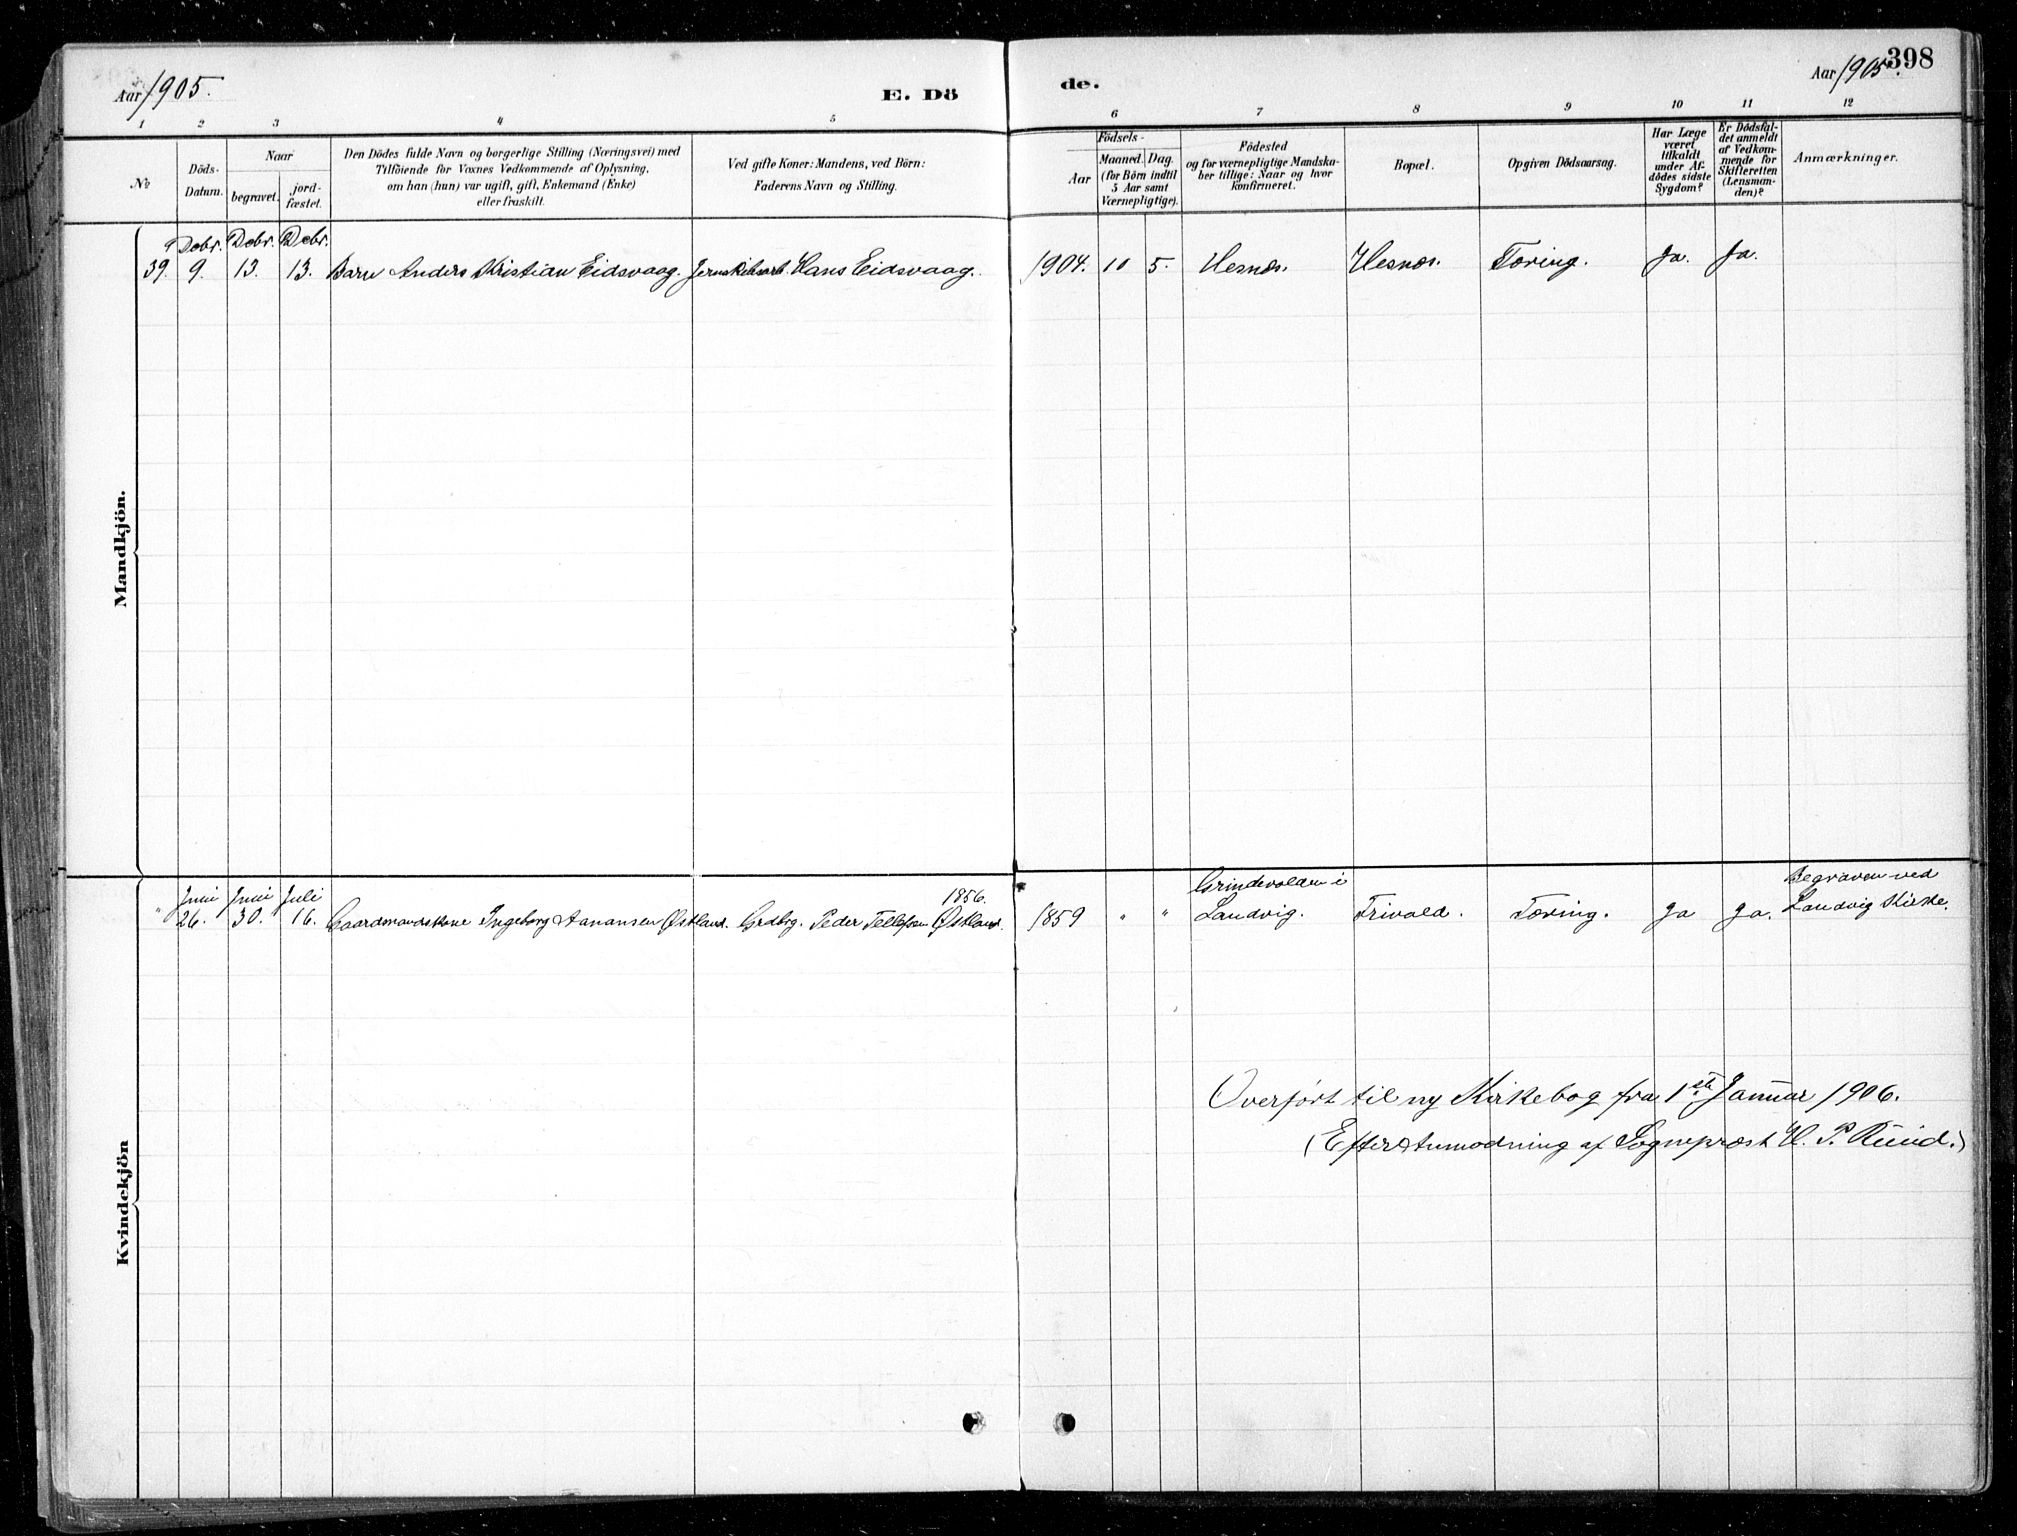 Aar 1905.
E. Dö
de.
Aar 1905.
398
1 2 3 4 5 6 7 8 9 10 11 12
No
Döds-
Datum.
Naar
begravet.
jord-
fæstet.
Den Dödes fulde Navn og borgerlige Stilling (Næringsvei) med
Tilföiende for Voxnes Vedkommende af Oplysning,
om han (hun) var ugift, gift, Enkemand (Enke)
eller fraskilt.
Ved gifte Koner: Mandens, ved Börn:
Faderens Navn og Stilling.
Födsels-
Aar
Maaned. Dag.
(for Börn indtil
5 Aar samt
Værnepligtige).
Födested
og for værnepligtige Mandska-
ber tillige: Naar og hvor
konfirmeret.
Bopæl.
Opgiven Dödsaarsag.
Har Læge
været
tilkaldt
under Af-
dödes sidste
Sygdom?
Er Dödsfal-
det anmeldt
af Vedkom-
mende for
Skifteretten
(Lensman-
den)?
Anmærkninger.
Mandkjön.
Debr. Debr. Debr.
39. 9. 13. 13. Barn Anders Kristian Eidsvaag. Hans Eidsvaag. 1904. 10 5. Hesnæs. Hesnæs. Tæring. Ja. Ja.
Kvindekjön
Juni Juni Juli 1856. Grindevolden i Begraven ved
" 26. 30. 16. Gaardmandskone Ingeborg Aanansen Østland. Grdbrg. Peder Tellefsen Østland. 1859 " " Landvig. Trivold. Tæring. Ja Ja. Landvig Kirke.
Overført til ny Kirkebog fra 1ste Januar 1906.
(Efter Anmodning af Sogneprest H. P. Ruud.)